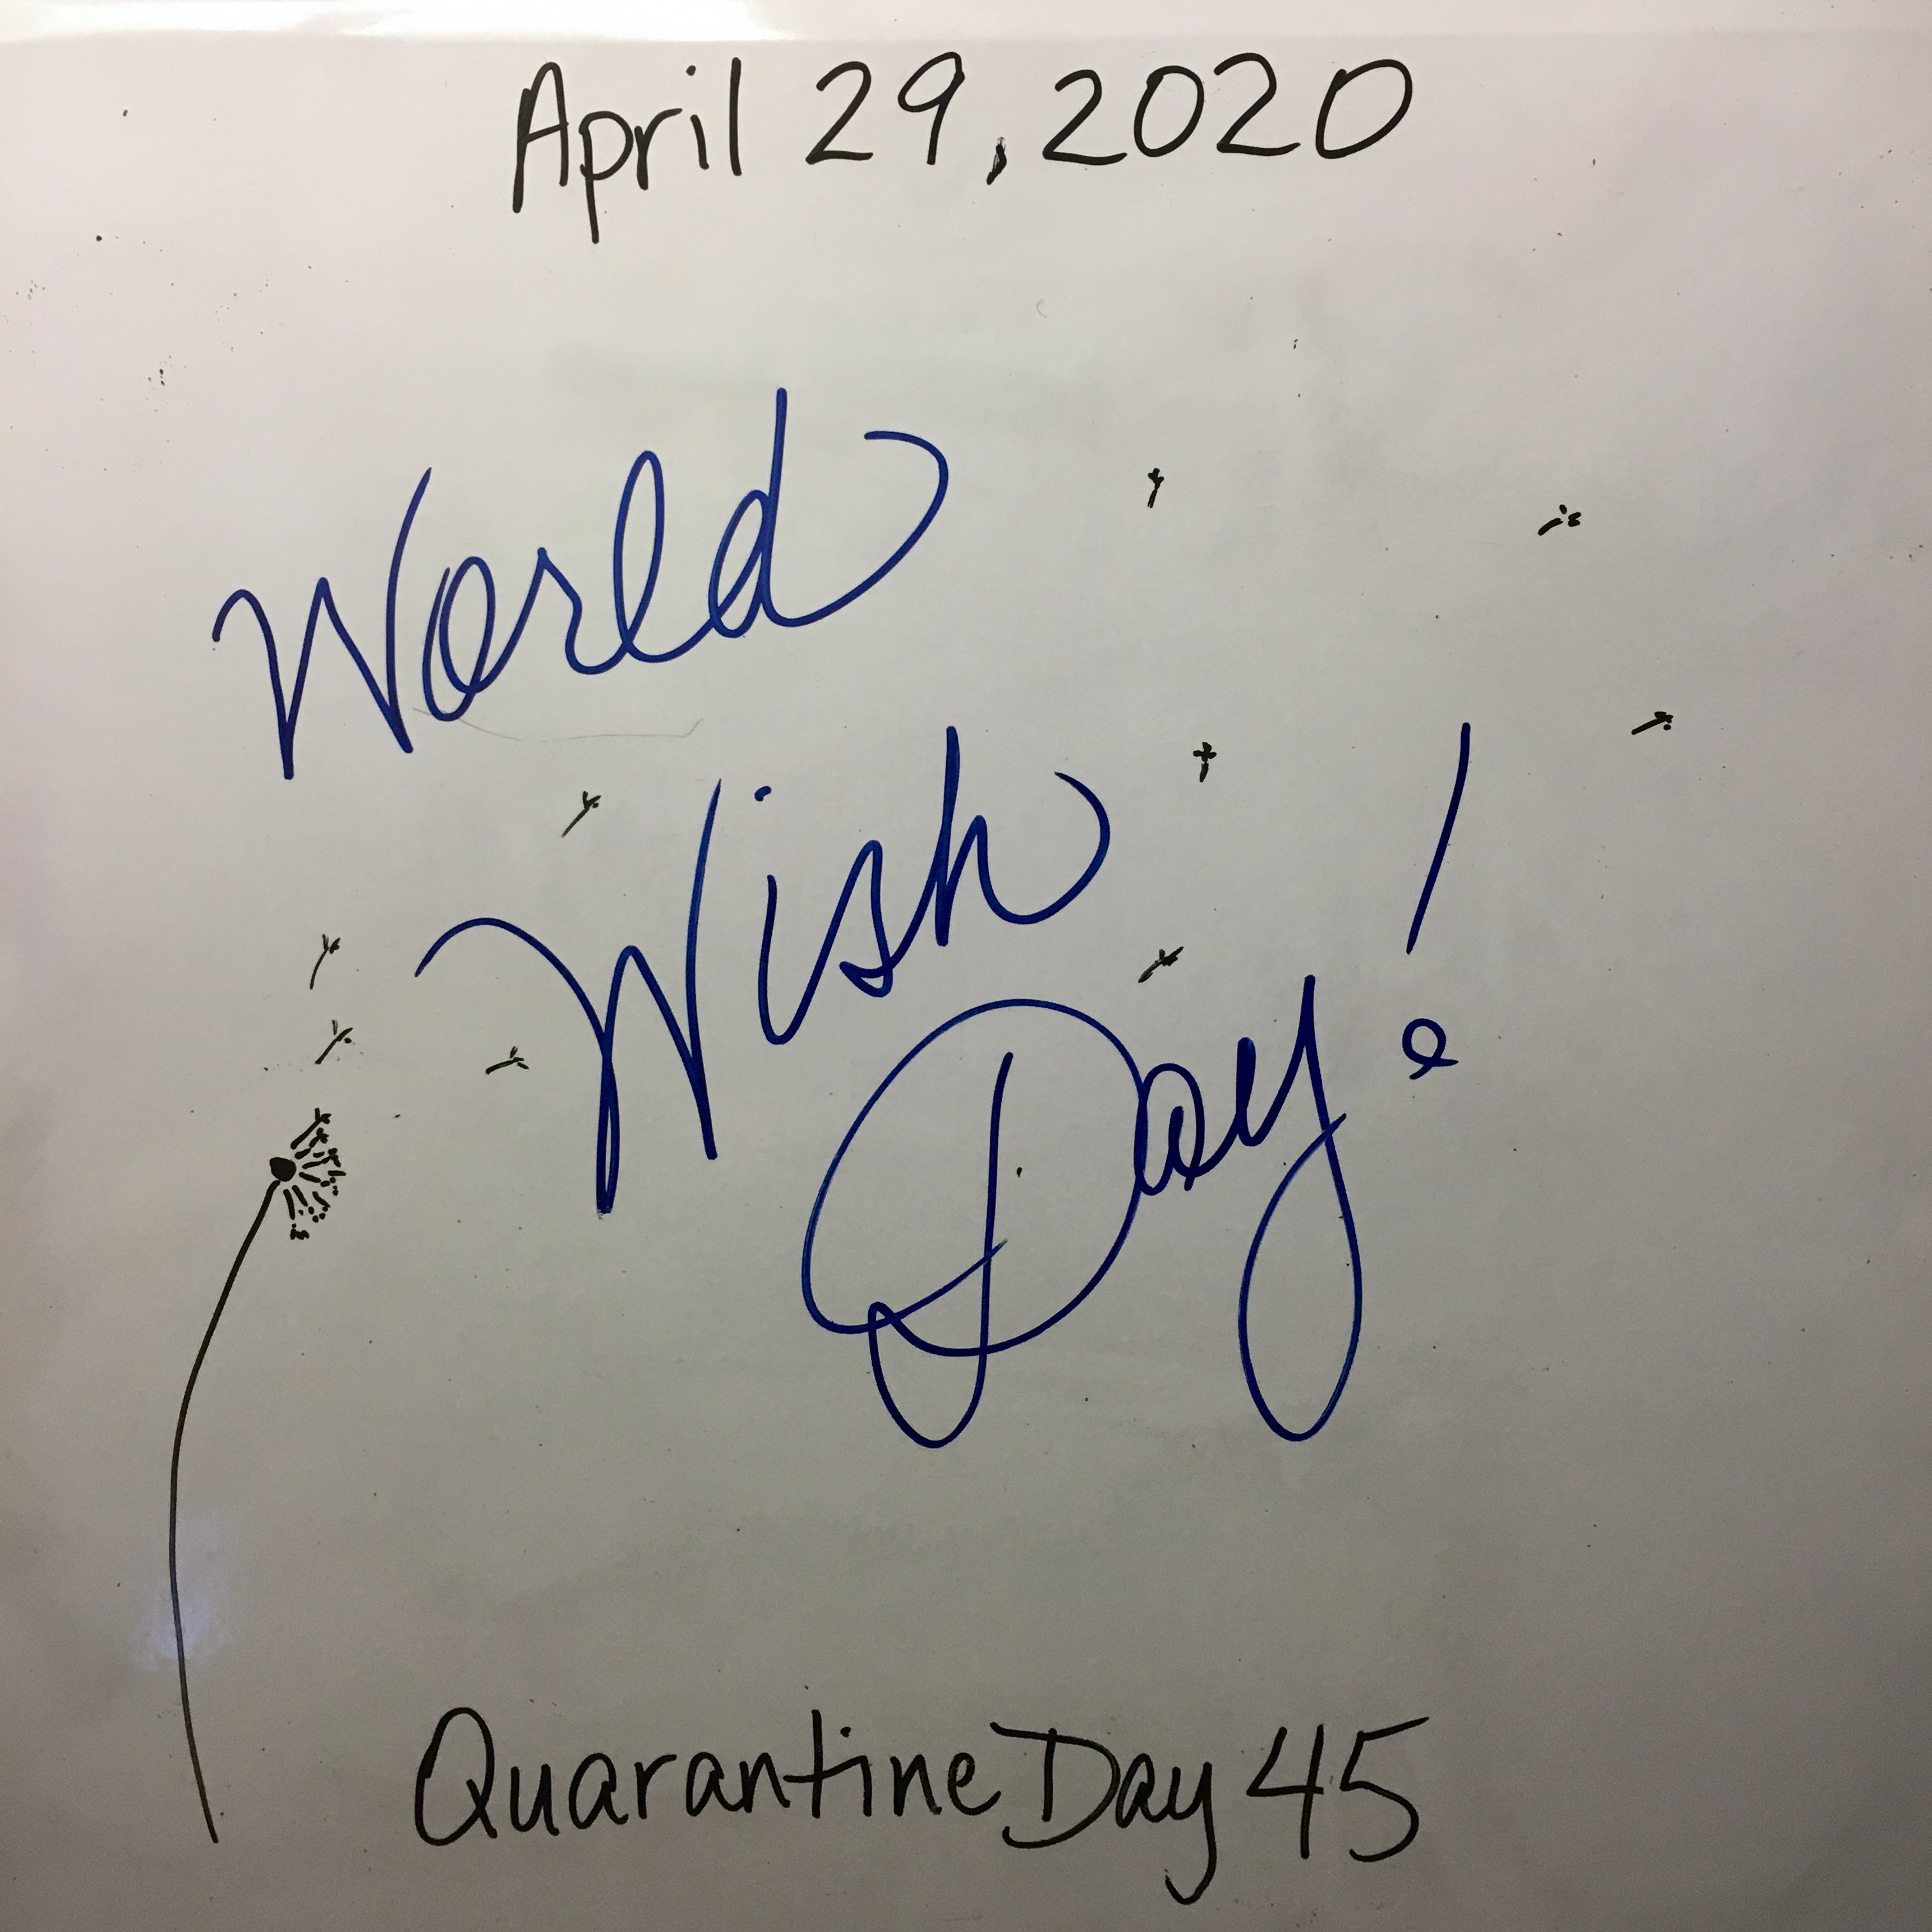 April 29, 2020
World
Wish
Day!
Quarantine Day 45